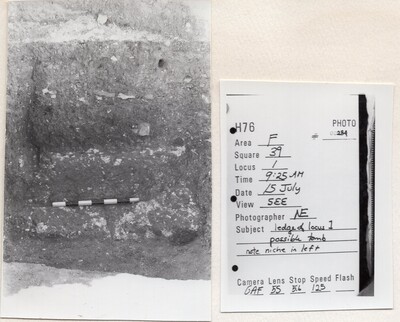 H76 PHOTO
Area F # 254
Square 39
Locus 1
Time 9:25 AM
Date 15 July
View SEE
Photographer NE
Subject ledge of locus 1
possible tomb
note niche in left
Camera Lens Stop Speed Flash
GAF 55 5.6 125